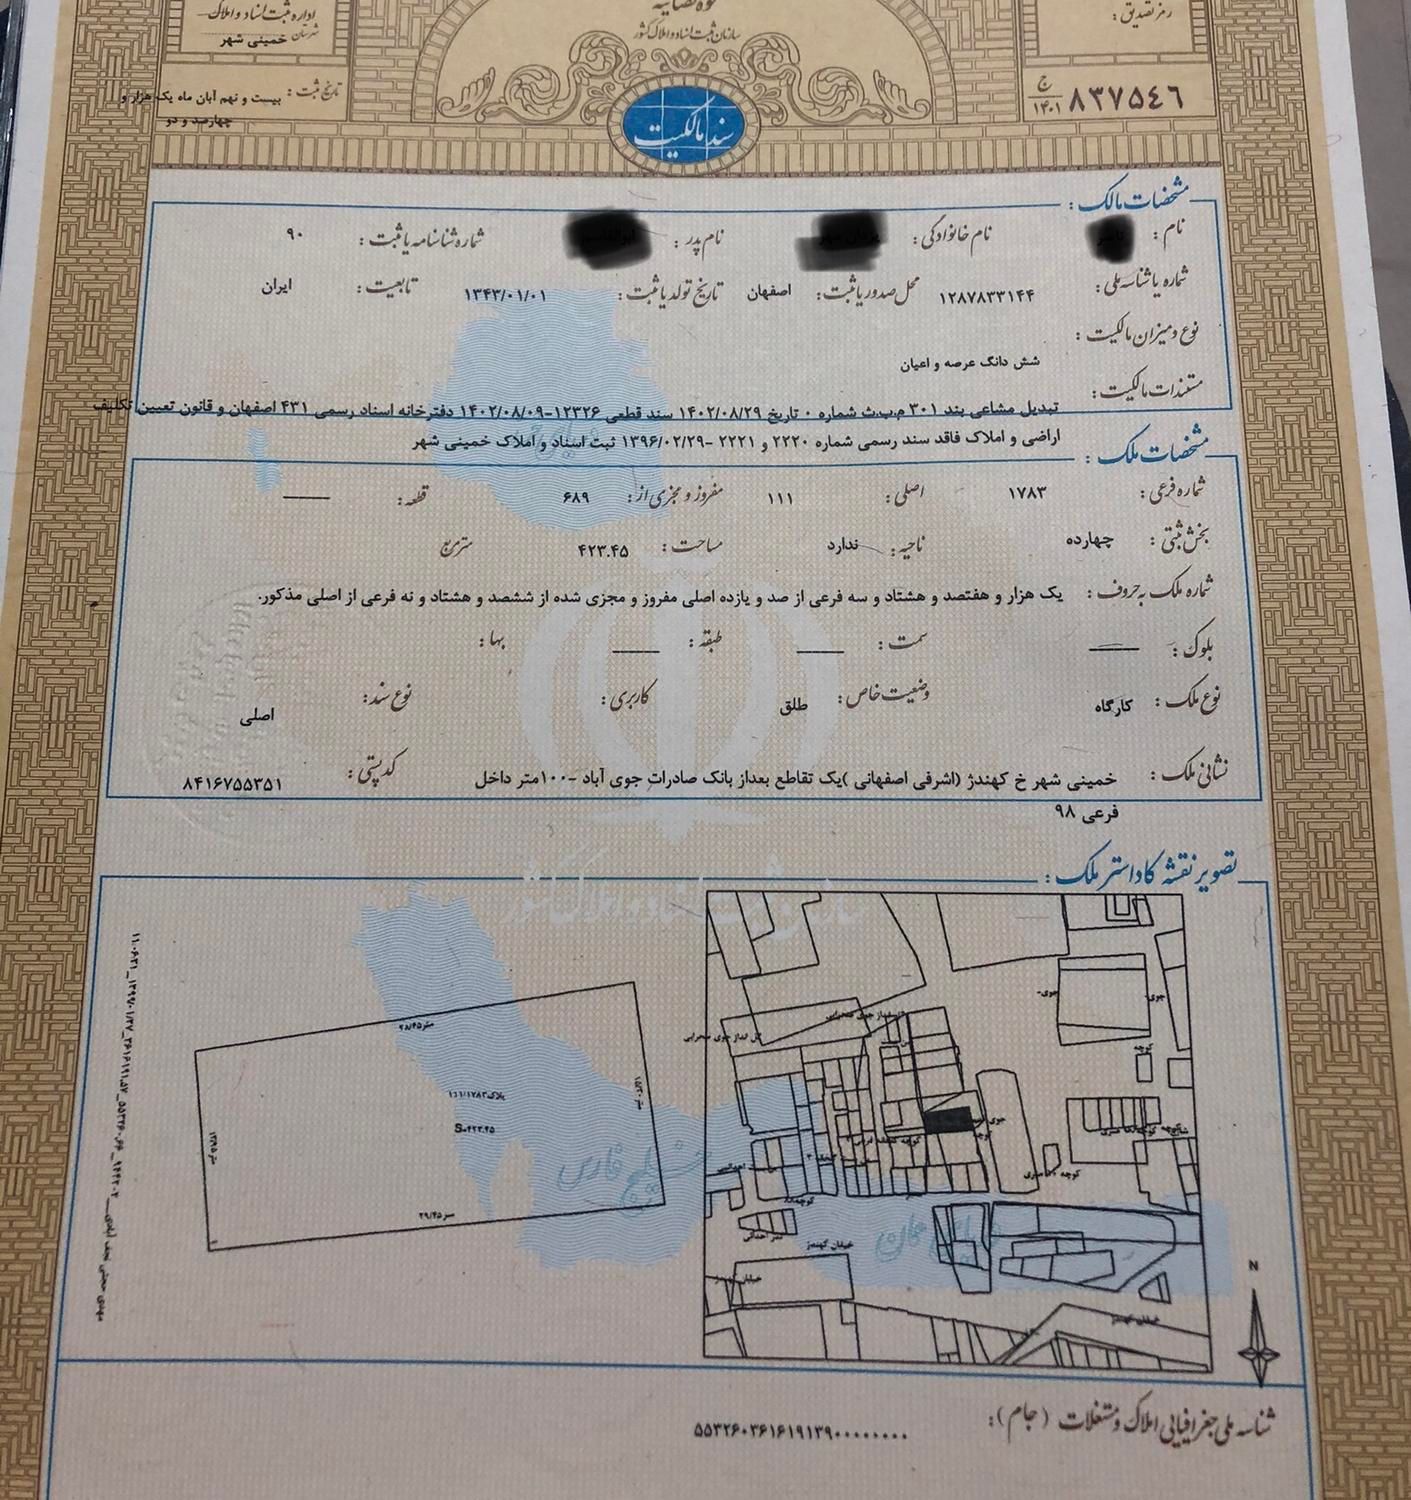 قوه قضاییه
سازمان ثبت اسناد و املاک کشور
رمز تصدیق :
اداره ثبت اسناد و املاک
شهرستان خمینی شهر
تاریخ ثبت : بیست و نهم آبان ماه یک هزار و
چهارصد و دو
ج ۱۴۰۱ ۸۳۷۵۴۶
سند مالکیت
مشخصات مالک :
نام : نام خانوادگی : نام پدر : شماره شناسنامه یا ثبت : ۹۰
شماره یا شناسه ملی : ۱۲۸۷۸۳۳۱۴۴ محل صدور یا ثبت : اصفهان تاریخ تولد یا ثبت : ۱۳۴۳/۰۱/۰۱ تابعیت : ایران
نوع و میزان مالکیت :
شش دانگ عرصه و اعیان
مستندات مالکیت :
تبدیل مشاعی بند ۳۰۱ م.ب.ث شماره ۰ تاریخ ۱۴۰۲/۰۸/۲۹ سند قطعی ۱۲۳۲۶-۱۴۰۲/۰۸/۰۹ دفترخانه اسناد رسمی ۴۳۱ اصفهان و قانون تعیین تکلیف
اراضی و املاک فاقد سند رسمی شماره ۲۲۲۰ و ۲۲۲۱ -۱۳۹۶/۰۲/۲۹ ثبت اسناد و املاک خمینی شهر
مشخصات ملک :
شماره فرعی : ۱۷۸۳ اصلی : ۱۱۱ مفروز و مجزی از : ۶۸۹ قطعه :
بخش ثبتی : چهارده ناحیه : ندارد مساحت : ۴۲۳.۴۵ مترمربع
شماره ملک به حروف : یک هزار و هفتصد و هشتاد و سه فرعی از صد و یازده اصلی مفروز و مجزی شده از ششصد و هشتاد و نه فرعی از اصلی مذکور.
بلوک : سمت : طبقه : بها :
نوع ملک : کارگاه وضعیت خاص : طلق کاربری : نوع سند : اصلی
نشانی ملک : خمینی شهر خ کهندژ (اشرفی اصفهانی )یک تقاطع بعداز بانک صادرات جوی آباد -۱۰۰متر داخل کد پستی : ۸۴۱۶۷۵۵۳۵۱
فرعی ۹۸
تصویر نقشه کاداستر ملک :
پلاک۱۱۱/۱۷۸۳
S=۴۲۳.۴۵
خلیج فارس
دریای عمان
خیابان کهندژ
N
شناسه ملی جغرافیایی املاک و مستغلات (جام):
۵۵۳۲۶۰۳۶۱۶۱۹۱۳۹۰۰۰۰۰۰۰۰۰